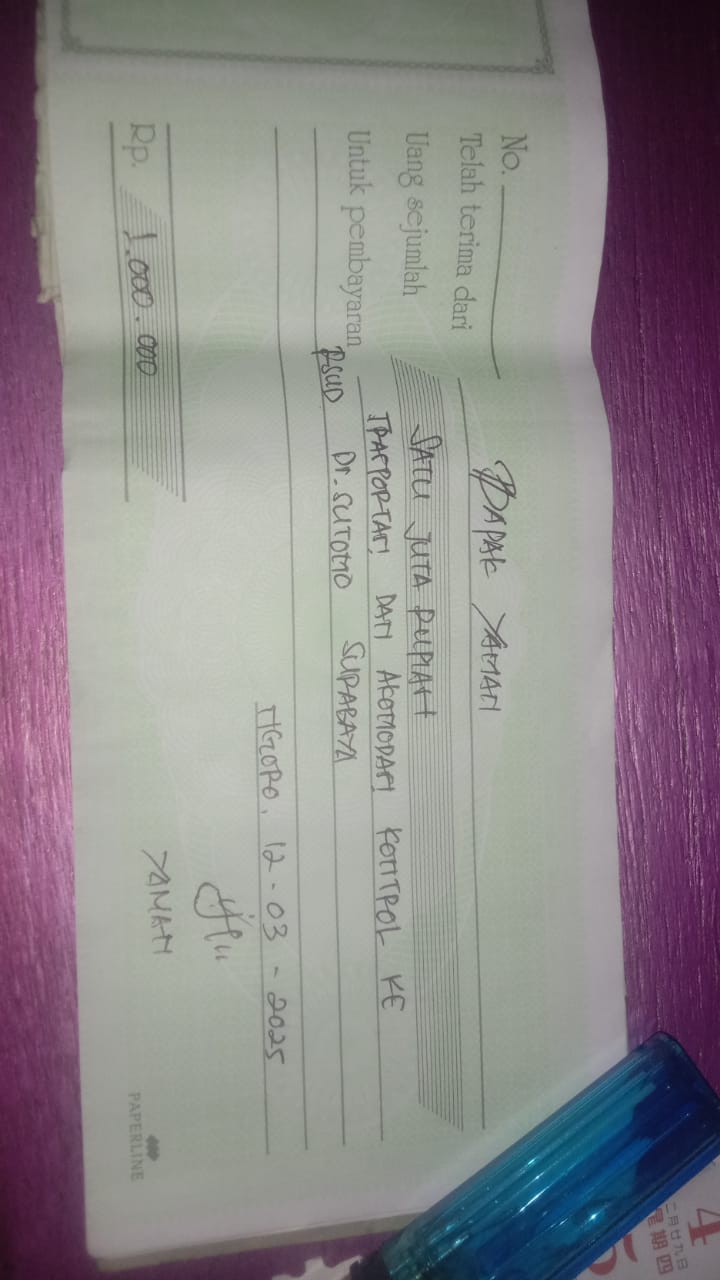 No.
Telah terima dari BAPAK YAMAN
Uang sejumlah SATU JUTA RUPIAH
Untuk pembayaran TRASPORTASI DAN AKOMODASI KONTROL KE
RSUD Dr. SUTOMO SURABAYA
NGORO, 12-03-2025
Rp. 1.000.000
YAMAN
PAPERLINE
4
二月廿九日
星期四